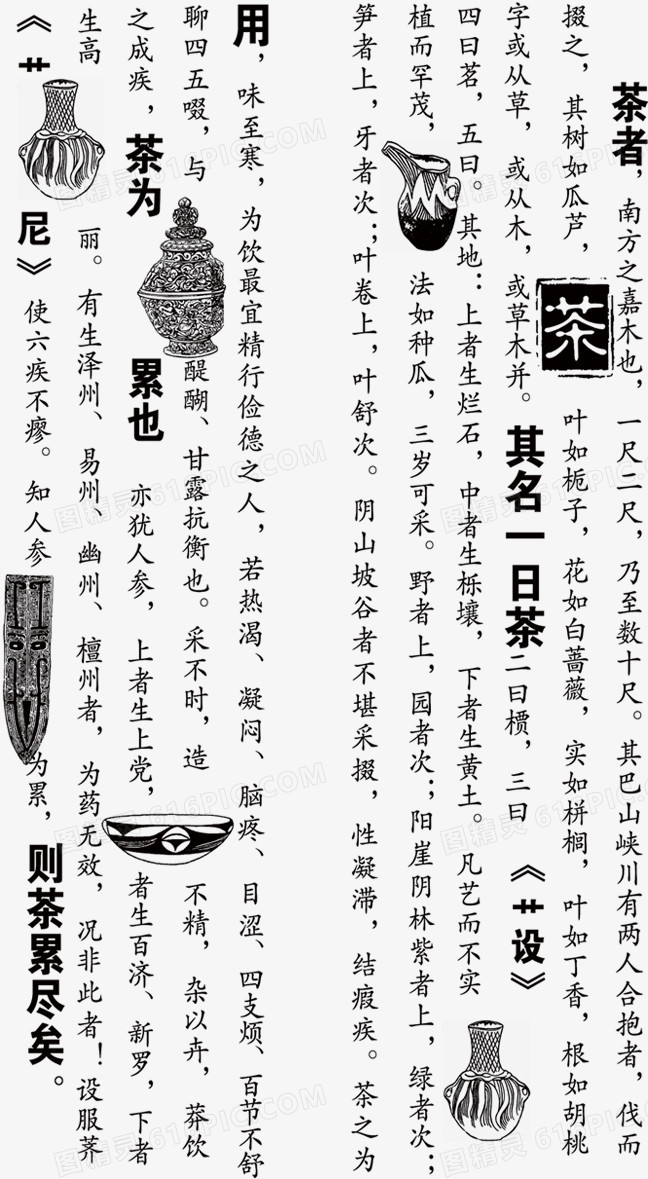 茶者，南方之嘉木也，一尺二尺，乃至数十尺。其巴山峡川有两人合抱者，伐而
掇之，其树如瓜芦，叶如栀子，花如白蔷薇，实如栟榈，叶如丁香，根如胡桃
茶
字或从草，或从木，或草木并。其名一日茶二曰槚，三曰《艹设》
四曰茗，五曰。其地：上者生烂石，中者生栎壤，下者生黄土。凡艺而不实
植而罕茂，法如种瓜，三岁可采。野者上，园者次；阳崖阴林紫者上，绿者次；
笋者上，牙者次；叶卷上，叶舒次。阴山坡谷者不堪采掇，性凝滞，结瘕疾。茶之为
用，味至寒，为饮最宜精行俭德之人，若热渴、凝闷、脑疼、目涩、四支烦、百节不舒
聊四五啜，与醍醐、甘露抗衡也。采不时，造不精，杂以卉，莽饮
之成疾，茶为累也亦犹人参，上者生上党，者生百济、新罗，下者
生高丽。有生泽州、易州、幽州、檀州者，为药无效，况非此者！设服荠
《艹尼》使六疾不瘳。知人参为累，则茶累尽矣。
图精灵 616PIC.COM